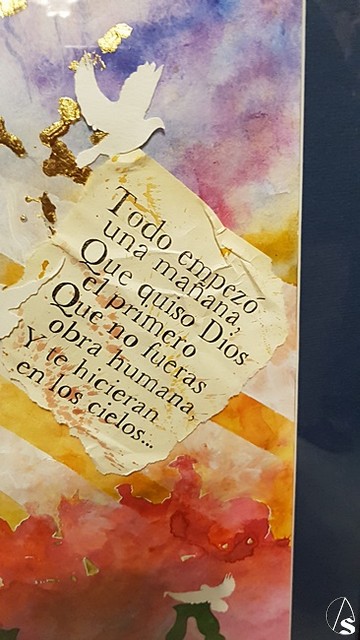 Todo empezó
una mañana,
Que quiso Dios
el primero
Que no fueras
obra humana,
Y te hicieran
en los cielos...